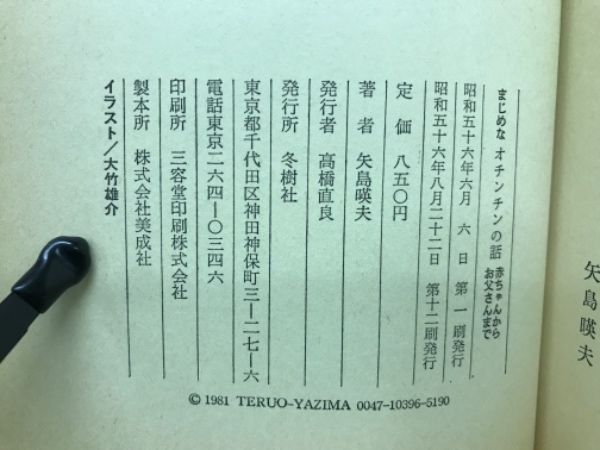 まじめな オチンチンの話 赤ちゃんから
お父さんまで
昭和五十六年六月 六 日 第一刷発行
昭和五十六年八月二十二日 第十二刷発行
定 価 八五〇円
著 者 矢島暎夫
発行者 高橋直良
発行所 冬樹社
東京都千代田区神田神保町三ー二七ー六
電話東京二六四ー〇三四六
印刷所 三容堂印刷株式会社
製本所 株式会社美成社
イラスト/大竹雄介
© 1981 TERUO-YAZIMA 0047-10396-5190
矢島暎夫